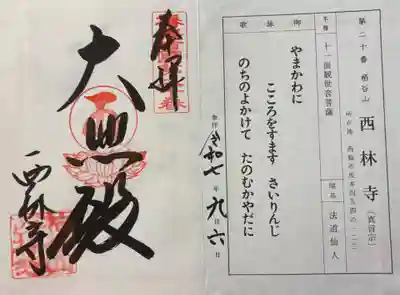 第二十番 栢谷山 西林寺 (真言宗)
所在地 西脇市坂本四五四の一二三
本尊 十一面観世音菩薩 開基 法道仙人
御詠歌
やまかわに
こころをすます さいりんじ
のちのよかけて たのむかやだに
参拝 令和七年九月六日
奉拝
大悲殿
西林寺